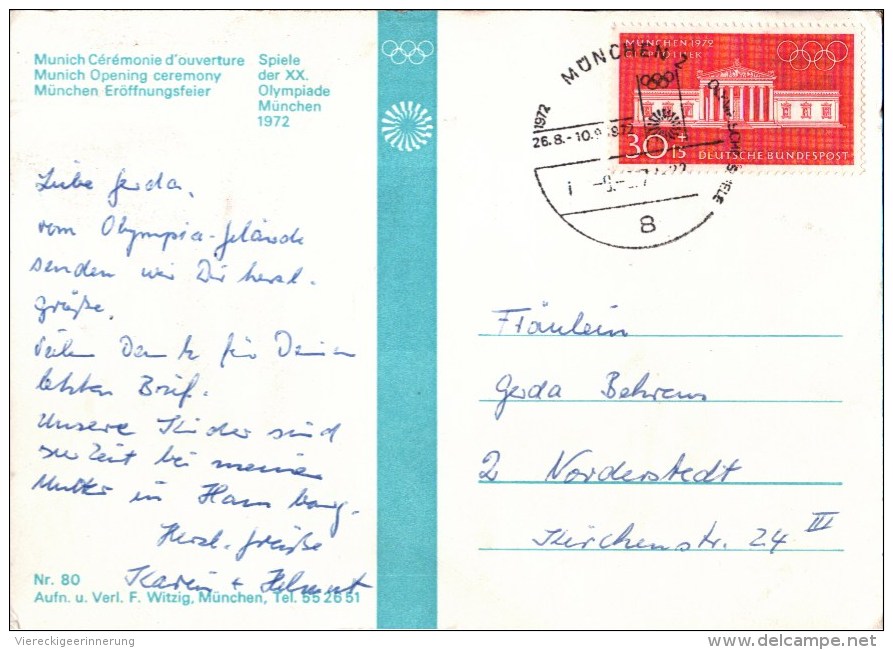 Munich Cérémonie d'ouverture
Munich Opening ceremony
München Eröffnungsfeier
Spiele
der XX.
Olympiade
München
1972
Liebe Gerda,
vom Olympia-Gelände
senden wir Dir herzl.
Grüße.
Vielen Dank für Deinen
letzten Brief.
Unsere Kinder sind
zur Zeit bei meiner
Mutter in Hamburg.
Herzl. Grüße
Karin + Helmut
Nr. 80
Aufn. u. Verl. F. Witzig, München, Tel. 55 26 51
MÜNCHEN 2
1972
OLYMPISCHE SPIELE
26.8.-10.9.1972
8
MÜNCHEN 1972
30+15
DEUTSCHE BUNDESPOST
Fräulein
Gerda Behrens
2 Norderstedt
Kirchenstr. 24 III
Viereckigeerinnerung
www.delcampe.net